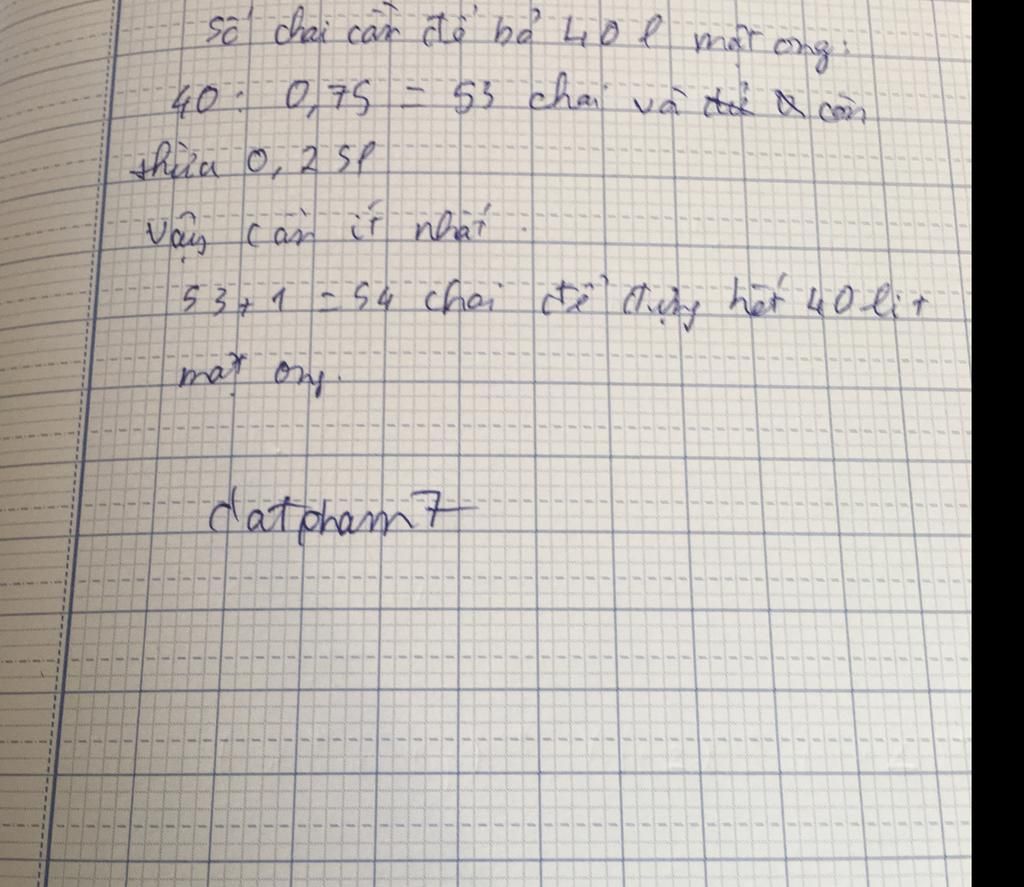 số chai cần để bỏ 40 l mật ong:
40: 0,75 = 53 chai và còn
thừa 0,25l
vậy cần ít nhất.
53+1 = 54 chai để đựng hết 40 lít
mật ong.
datpham7